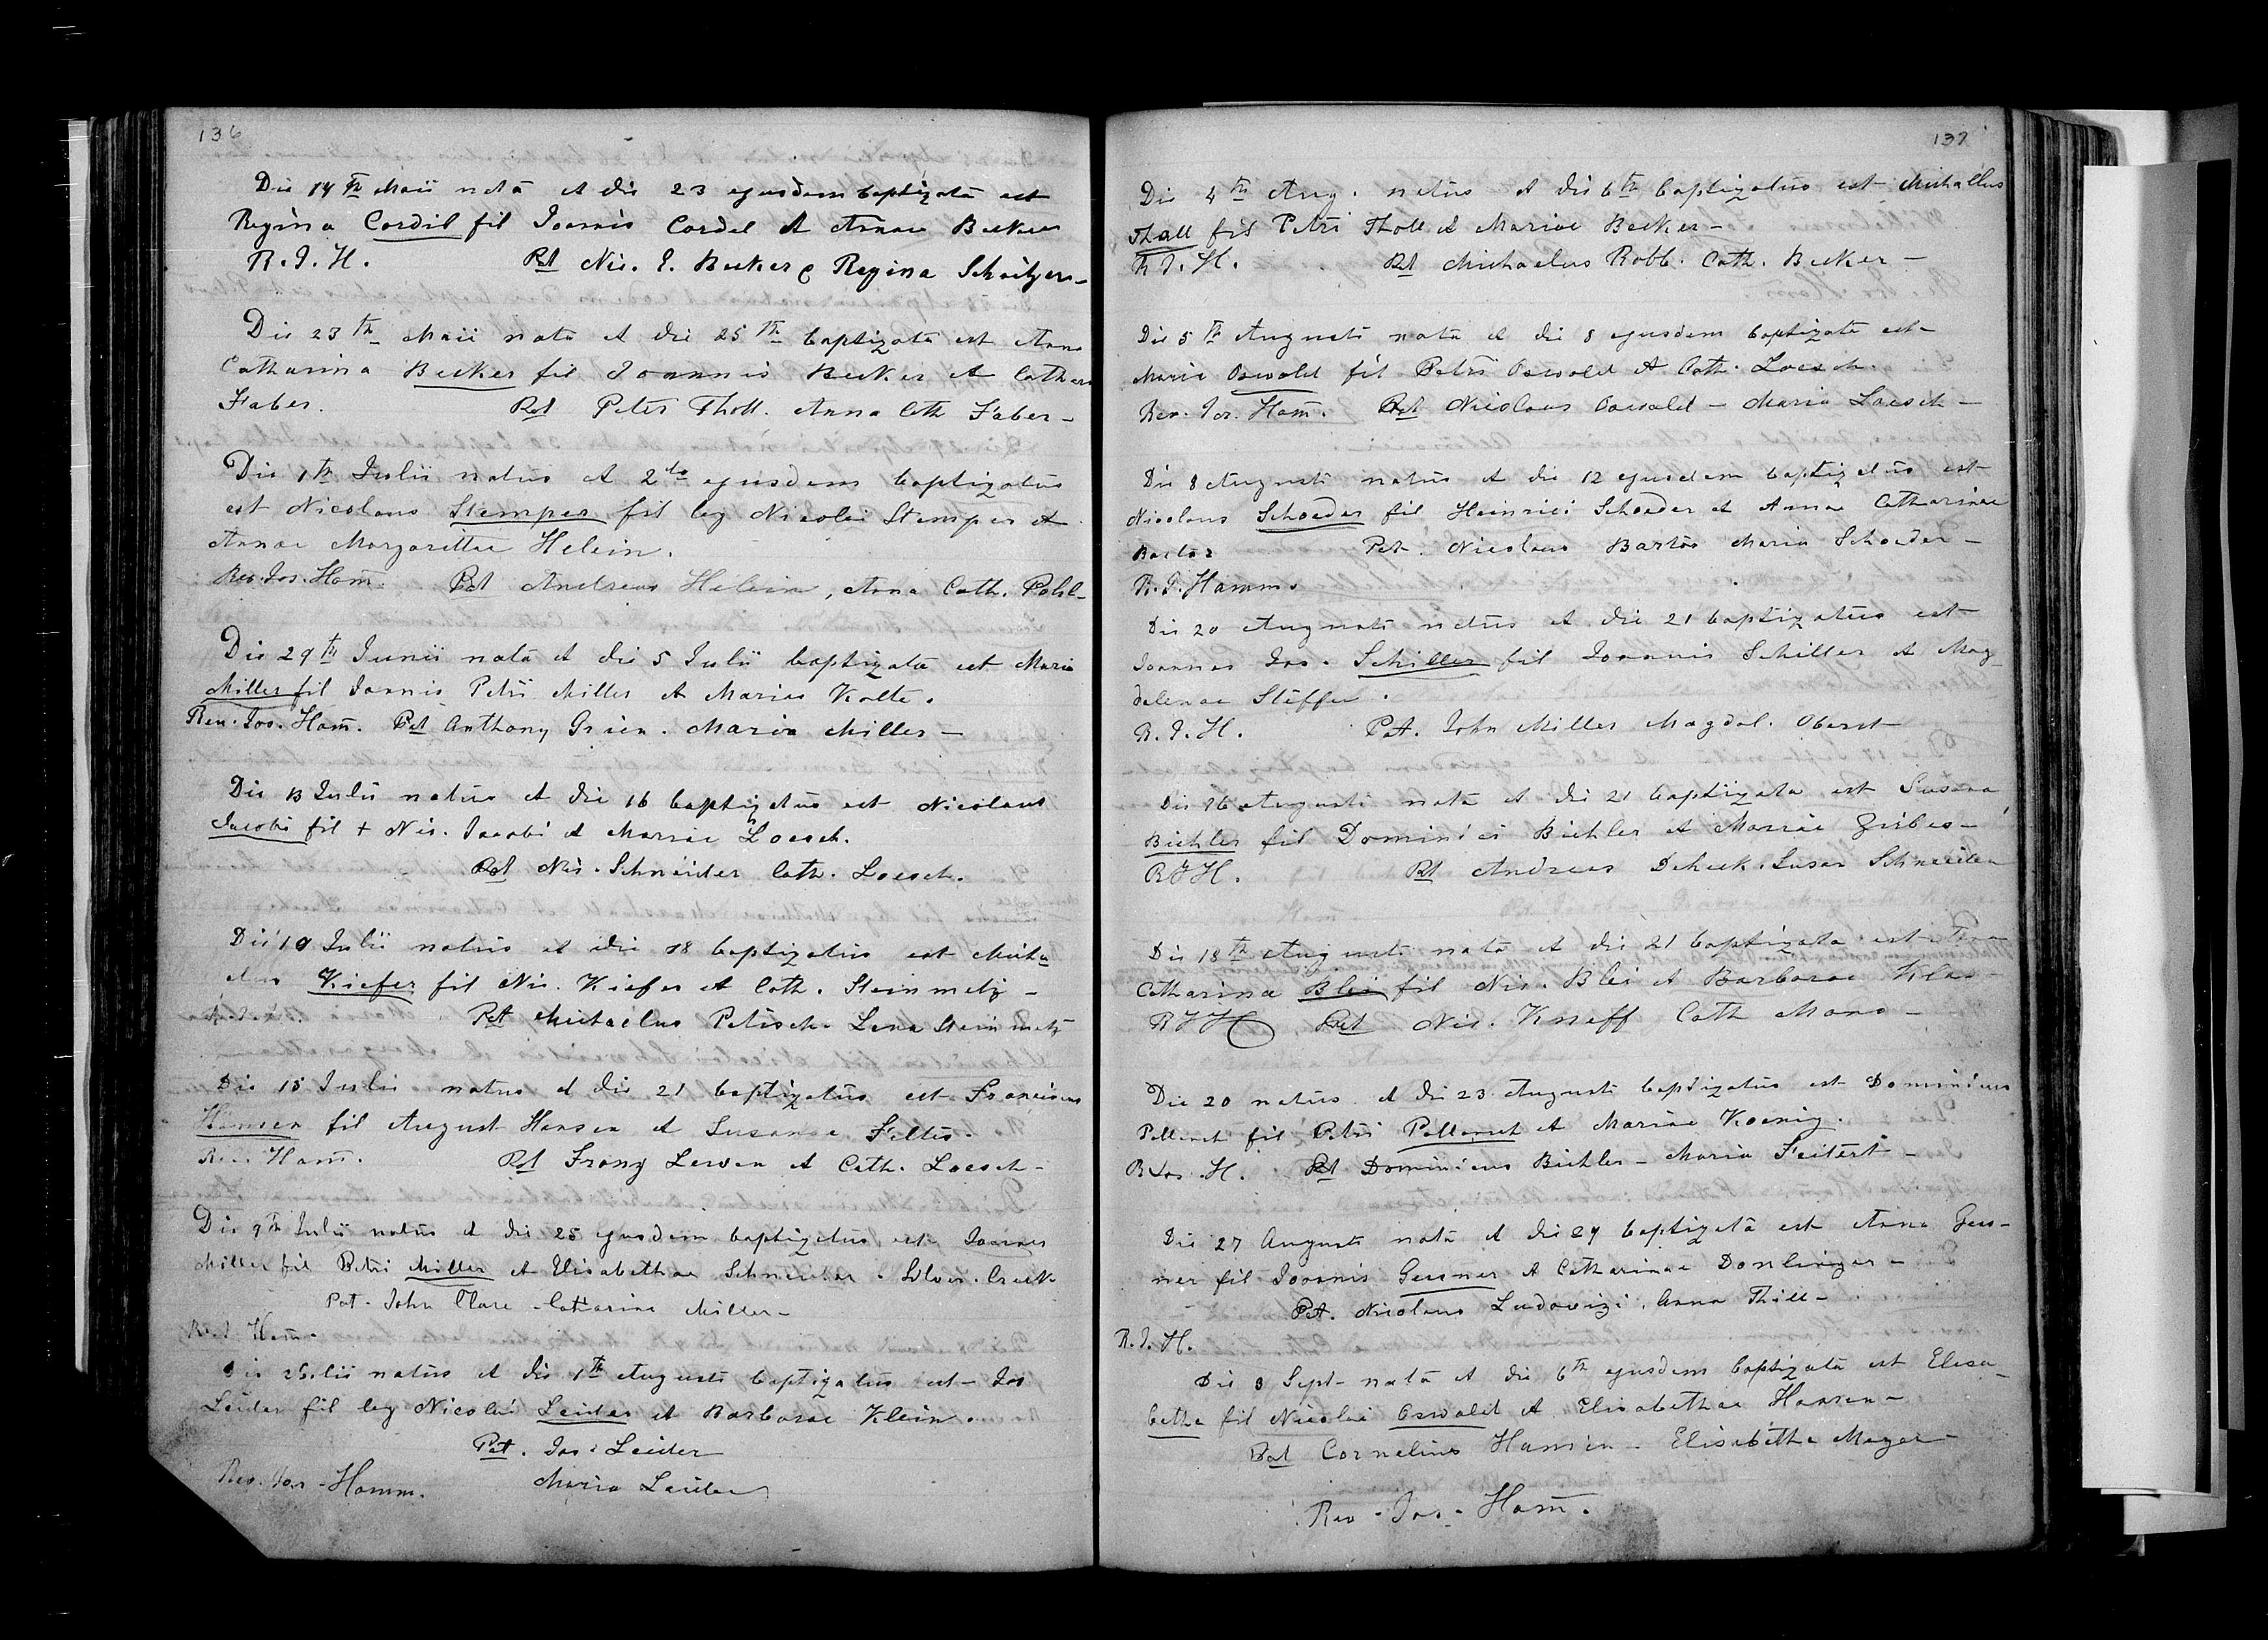 136
Die 14th Maii nata et die 23 ejusdem baptizata est
Regina Cordil fil Joannis Cordel et Annae Becker
R. J. H. Pat Nic. J. Becker e Regina
Die 23th Maii nata et die 25th baptizata est Anna
Catharina Becker fil Joannis Becker et Cathar
Faber. Pat Peter Tholl. Anna Cath Faber -
Die 1th Julii natus et 2do ejusdem baptizatus
est Nicolaus Stemper fil leg Nicolei Stemper et
Annae Margarittae Helein.
Rev. Jos. Ham. Pat Andreas Helein, Anna Cath. Pohl -
Die 29th Junii nata et die 5 Julii baptizata est Maria
Miller fil Joannis Petri Miller et Mariae Kolte.
Rev. Jos. Ham. Pat Anthony Grien. Maria Miller -
Die 13 Julii natus et die 16 baptizatus est Nicolaus
Jacobi fil + Nic. Jacobi et Mariae Loesch.
Pat Nic. Schneider Cath. Loesch.
Die 10 Julii natus et die 18 baptizatus est Micha
elus Kiefer fil Nic. Kiefer et Cath. Steinmetz -
Pat Michaelus Petesch. Lena Steinmetz
Die 15 Julii natus et die 21 baptizatus est Franciscus
Hansen fil August Hansen et Susanna Feltes.
Rev. Ham. Pat Franz Lewen et Cath. Loesch -
Die 9th Julii natus et die 25 ejusdem baptizatus est Joannes
Miller fil Petri Miller et Elisabethae Schneider. Silver. Creek
Pat. John Clare - Catharina Miller -
Rev. J. Ham.
Die 25 lii natus et die 1th Augusti baptizatus est Jos
Leider fil leg Nicolei Leider et Barbarae Klein.
Pat. Jos. Leider
Rev. Jos. Hamm. Maria Leider
137
Die 4th Aug. natus et die 6th baptizatus est Michallus
Thall fil Petri Tholl et Mariae Becker -
R J. H. Pat Michaelus Robb. Cath. Becker -
Die 5th Augusti nata et die 8 ejusdem baptizata est
Maria Oswald fil Petri Oswald et Cath. Loesch.
Rev. Jos. Ham. Pat Nicolaus Oswald - Maria Loesch -
Die 8 Augusti natus et die 12 ejusdem baptizatus est
Nicolaus Schoeder fil Heinrici Schoeder et Annae Catharinae
Bartos Pat. Nicolaus Bartos Maria Schoeder -
R. J. Hamm.
Die 20 Augusti natus et die 21 baptizatus est
Joannes Jos. Schiller fil Joannis Schiller et Mag
dalenae Steffen.
R. J. H. Pat. John Miller Magdal. Oberst
Die 16 Augusti nata et die 21 baptizata est Susana
Biehler fil Dominici Biehler et Mariae Zirbes -
R J H. Pat Andreas Scheek. Susan Schneider
Die 18th Augusti nata et die 21 baptizata est
Catharina Blei fil Nic. Blei et Barbarae Klas -
R J H Pat Nic. Kneff Cath Mans -
Die 20 natus et die 23 Augusti baptizatus est Dominicus
fil Petri et Mariae Koenig.
R Jos. H. Pat Dominicus Biehler - Maria Feitert -
Die 27 Augusti nata et die 29 baptizata est Anna Gess-
ner fil Joannis Gessner et Catharinae Donlinger -
Pat. Nicolaus Ludowizi. Anna Thill -
R. J. H.
Die 3 Sept - nata et die 6th ejusdem baptizata est Elisa
betha fil Nicolai Oswald et Elisabethae Hansen -
Pat Cornelius Hansen - Elisabetha Mayer -
Rev - Jos. Ham.